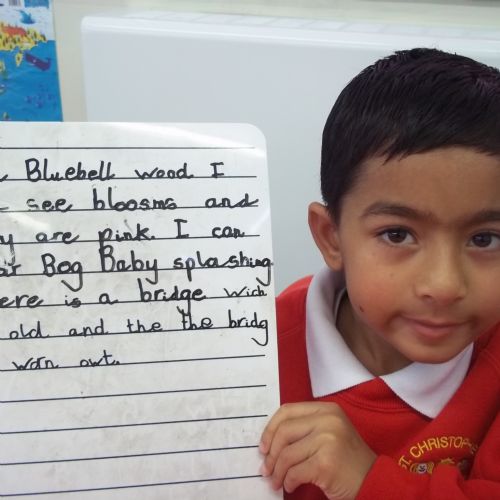 Bluebell wood I
see bloosms and
are pink. I can
Beg Baby splashing
is a bridge wich
old and the the bridg
worn out.
ST. CHRISTOPHE